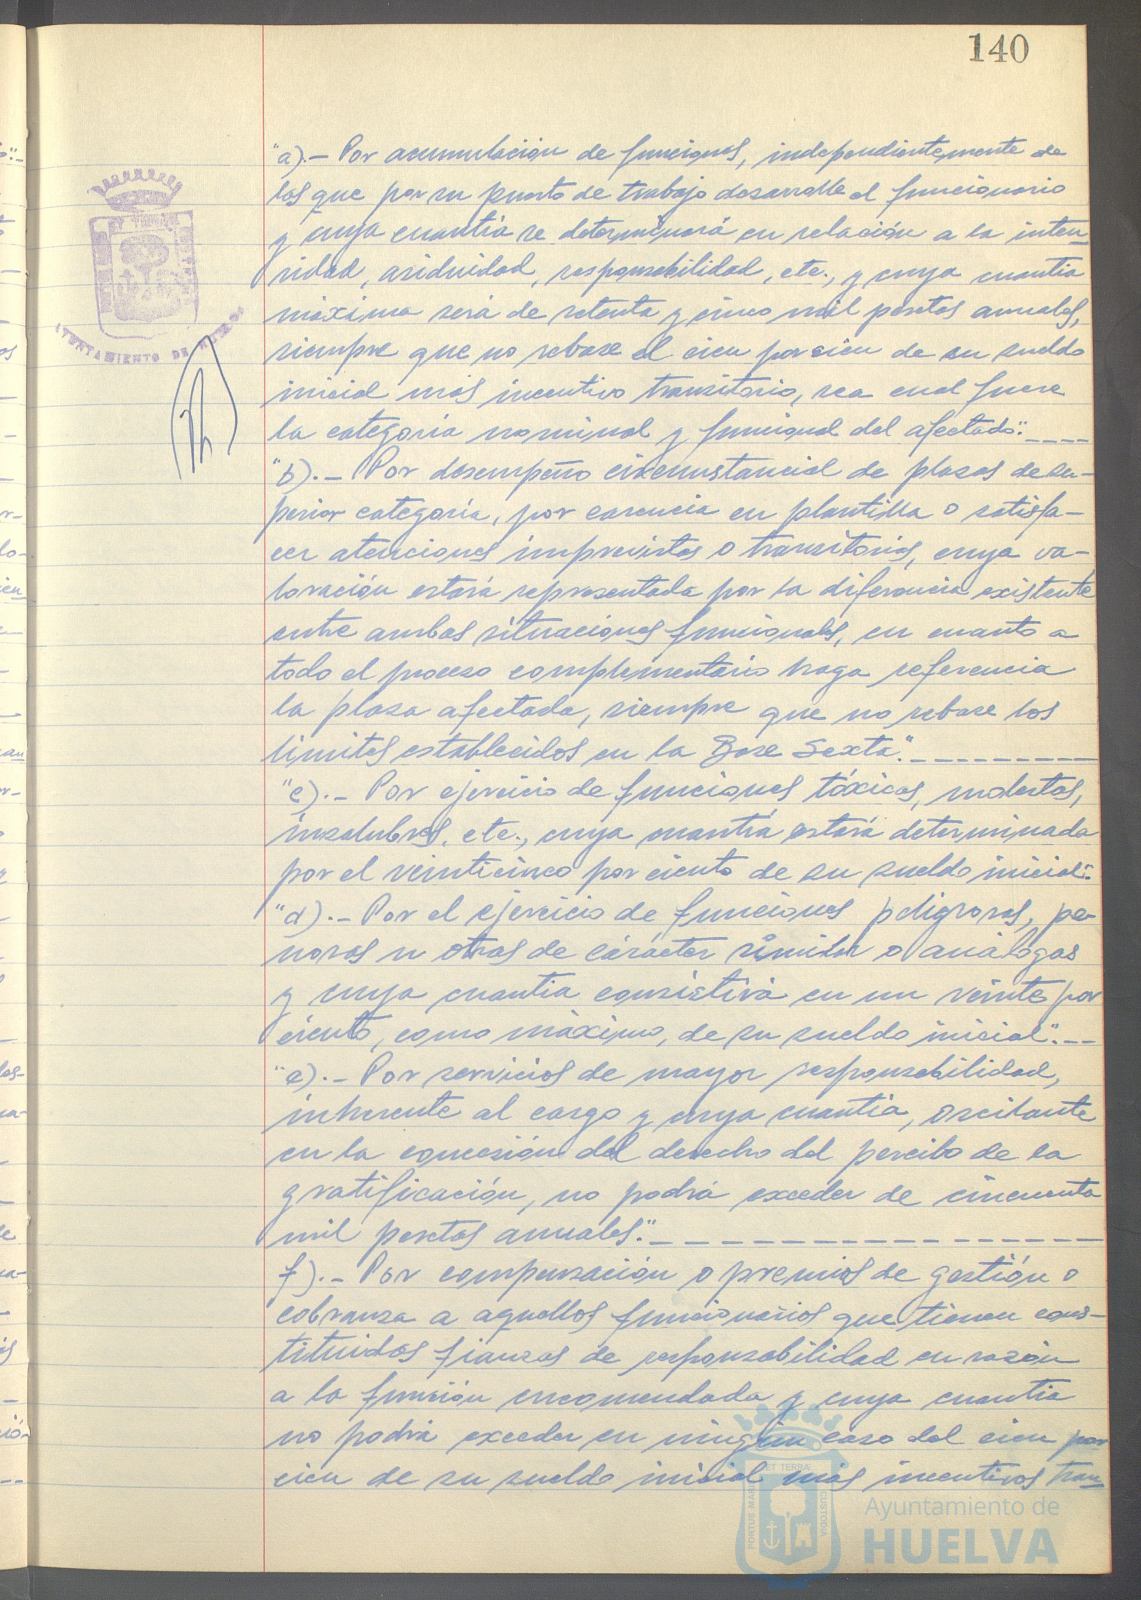 140
"a).- Por acumulación de funciones, independientemente de
las que por su puesto de trabajo desarrolle el funcionario
y cuya cuantía se determinará en relación a la inten-
sidad, asiduidad, responsabilidad, etc., y cuya cuantía
máxima será de setenta y cinco mil pesetas anuales,
siempre que no rebase el cien por cien de su sueldo
inicial más incentivo transitorio, sea cual fuere
la categoría nominal y funcional del afectado".----
"b).- Por desempeño circunstancial de plazas de su-
perior categoría, por carencia en plantilla o satisfa-
cer atenciones imprevistas o transitorias, cuya va-
loración estará representada por la diferencia existente
entre ambas situaciones funcionales, en cuanto a
todo el proceso complementario haga referencia
la plaza afectada, siempre que no rebase los
límites establecidos en la Base Sexta".---------
"c).- Por ejercicio de funciones tóxicas, molestas,
insalubres, etc., cuya cuantía estará determinada
por el veinticinco por ciento de su sueldo inicial".-
"d).- Por el ejercicio de funciones peligrosas, pe-
nosas u otras de carácter similar o análogas
y cuya cuantía consistirá en un veinte por
ciento, como máximo, de su sueldo inicial".---
"e).- Por servicios de mayor responsabilidad,
inherente al cargo y cuya cuantía, oscilante
en la concesión del derecho del percibo de la
gratificación, no podrá exceder de cincuenta
mil pesetas anuales".---------------
f).- Por compensación o premios de gestión o
cobranza a aquellos funcionarios que tienen cons-
tituidas fianzas de responsabilidad en razón
a la función encomendada y cuya cuantía
no podrá exceder en ningún caso del cien por
cien de su sueldo inicial más incentivos tran-
AYUNTAMIENTO DE HUELVA
PORTUS MARIS ET TERRAE CUSTODIA
Ayuntamiento de
HUELVA